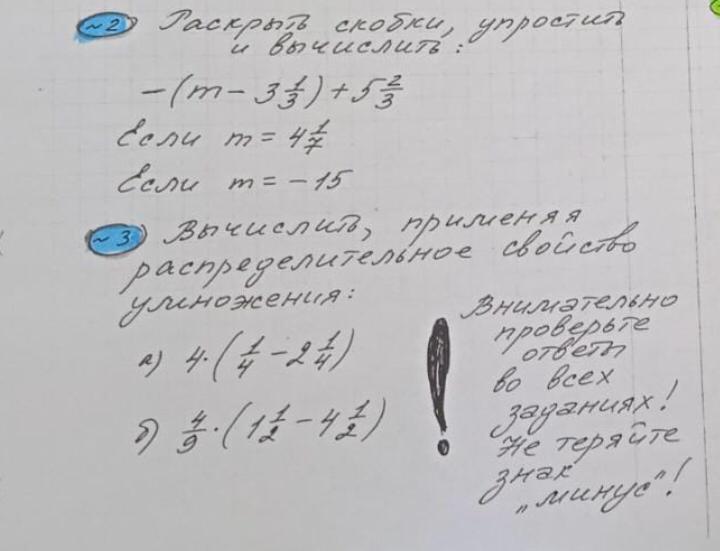 ~2 Раскрыть скобки, упростить
и вычислить:
-(m - 3 1/3) + 5 2/3
Если m = 4 1/7
Если m = -15
~3 Вычислить, применяя
распределительное свойство
умножения:
а) 4·(1/4 - 2 1/4)
б) 4/9·(1 1/2 - 4 1/2)
!
Внимательно
проверьте
ответы
во всех
заданиях!
Не теряйте
знак
„минус"!